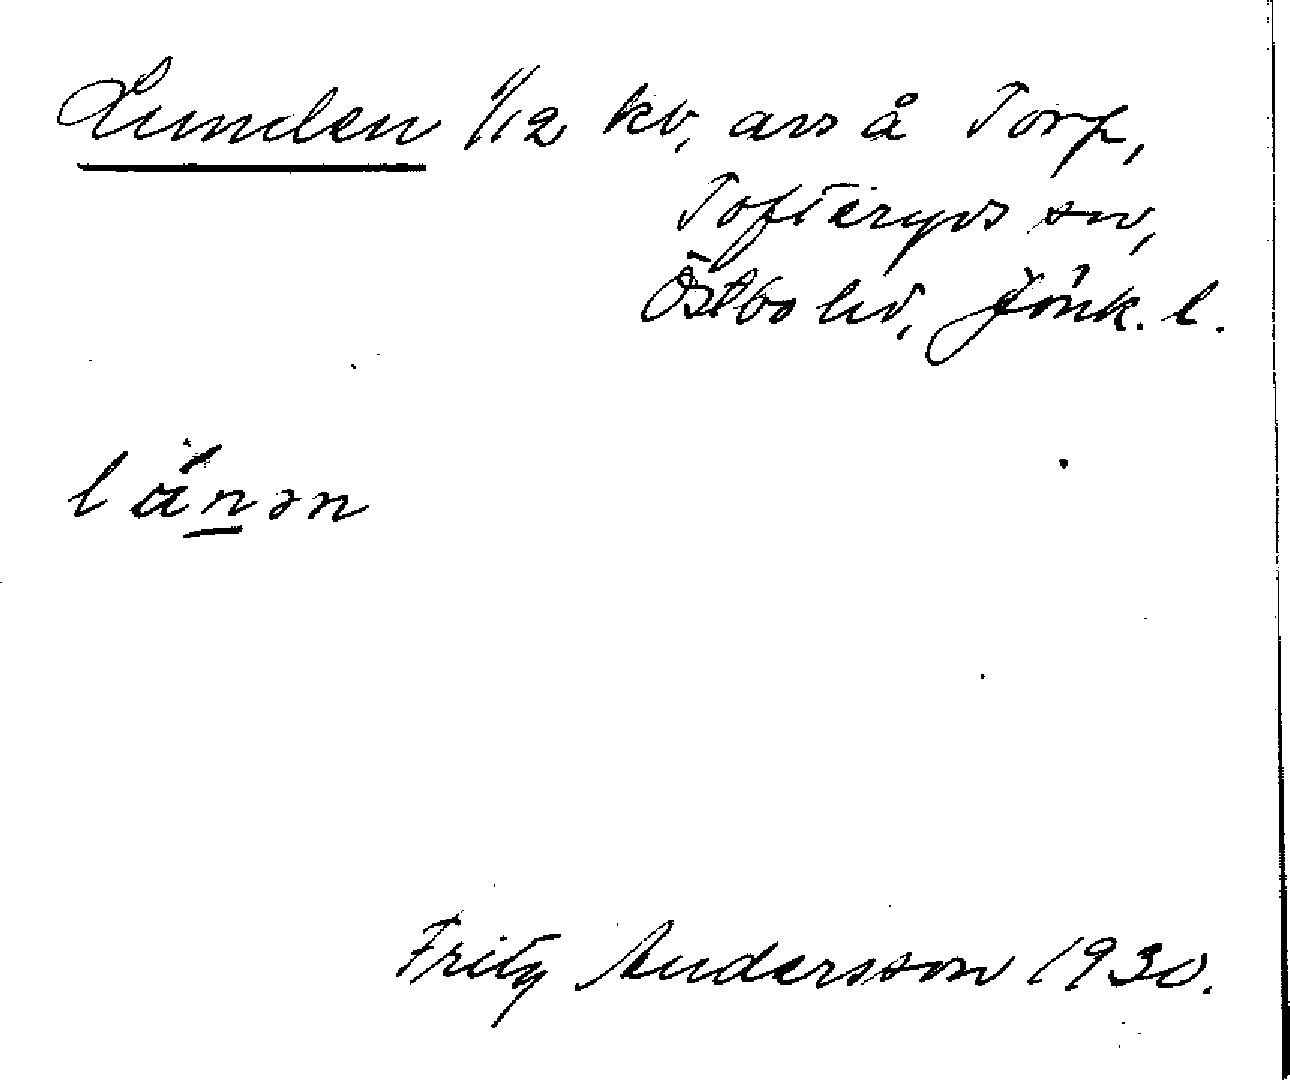 Lunden 1/12 kv, avs å Torp,
Tofteryds sn,
Östbo hd, Jönk. l.
lánən
Fritz Andersson 1930.